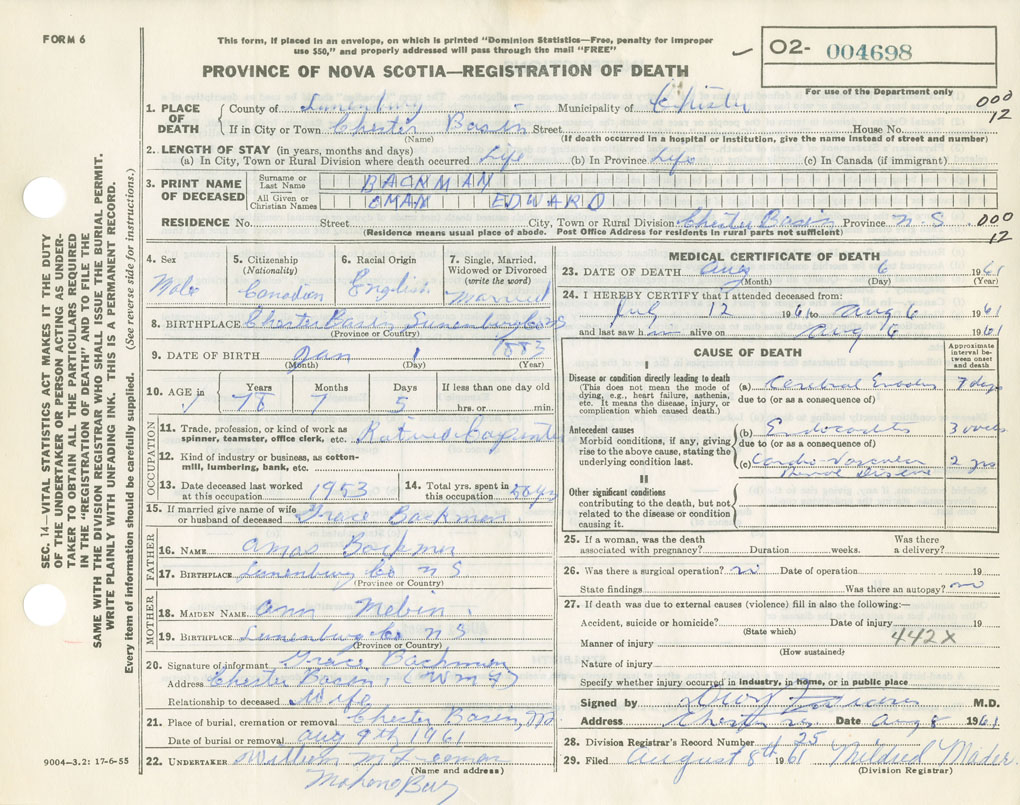 FORM 6
This form, if placed in an envelope, on which is printed "Dominion Statistics—Free, penalty for improper
use $50," and properly addressed will pass through the mail "FREE"
O2- 004698
PROVINCE OF NOVA SCOTIA—REGISTRATION OF DEATH
For use of the Department only
000
12
1. PLACE OF DEATH County of Lunenburg Municipality of Chester
If in City or Town Chester Basin Street House No.
(Name) (If death occurred in a hospital or institution, give the name instead of street and number)
2. LENGTH OF STAY (in years, months and days)
(a) In City, Town or Rural Division where death occurred Life (b) In Province Life (c) In Canada (if immigrant)
3. PRINT NAME OF DECEASED
Surname or Last Name BACKMAN
All Given or Christian Names OMAN EDWARD
RESIDENCE No. Street City, Town or Rural Division Chester Basin Province N S
(Residence means usual place of abode. Post Office Address for residents in rural parts not sufficient)
000
12
4. Sex
Male
5. Citizenship
(Nationality)
Canadian
6. Racial Origin
English
7. Single, Married,
Widowed or Divorced
(write the word)
Married
8. BIRTHPLACE Chester Basin Lunenburg Co NS
(Province or Country)
9. DATE OF BIRTH Jan 1 1883
(Month) (Day) (Year)
10. AGE in Years Months Days If less than one day old
78 7 5 hrs. or min.
OCCUPATION
11. Trade, profession, or kind of work as
spinner, teamster, office clerk, etc. Retired Carpenter
12. Kind of industry or business, as cotton-
mill, lumbering, bank, etc.
13. Date deceased last worked
at this occupation 1953
14. Total yrs. spent in
this occupation
15. If married give name of wife
or husband of deceased Grace Backman
FATHER
16. NAME Amas Backman
17. BIRTHPLACE Lunenburg Co N S
(Province or Country)
MOTHER
18. MAIDEN NAME Ann
19. BIRTHPLACE Lunenburg Co N S
(Province or Country)
20. Signature of informant Grace Backman
Address Chester Basin,
Relationship to deceased Wife
21. Place of burial, cremation or removal Chester Basin, NS
Date of burial or removal Aug 9th 1961
22. UNDERTAKER William M
(Name and address)
Mahone Bay
MEDICAL CERTIFICATE OF DEATH
23. DATE OF DEATH Aug 6 1961
(Month) (Day) (Year)
24. I HEREBY CERTIFY that I attended deceased from:
July 12 1961 to Aug 6 1961
and last saw h m alive on Aug 6 1961
CAUSE OF DEATH
Approximate
interval be-
tween onset
and death
I
Disease or condition directly leading to death
(This does not mean the mode of
dying, e.g., heart failure, asthenia,
etc. It means the disease, injury, or
complication which caused death.)
(a) Cerebral Embolus 7 days
due to (or as a consequence of)
Antecedent causes
Morbid conditions, if any, giving
rise to the above cause, stating the
underlying condition last.
(b) Endocarditis 3 weeks
due to (or as a consequence of)
(c) Cardio-Vascular
Renal Disease 2 yrs
II
Other significant conditions
contributing to the death, but not
related to the disease or condition
causing it.
25. If a woman, was the death
associated with pregnancy? Duration weeks. Was there
a delivery?
26. Was there a surgical operation? no Date of operation 19
State findings Was there an autopsy? no
27. If death was due to external causes (violence) fill in also the following:—
Accident, suicide or homicide? Date of injury 19
(State which)
442X
Manner of injury
(How sustained)
Nature of injury
Specify whether injury occurred in industry, in home, or in public place
Signed by M.D.
Address Chester NS Date Aug 8 1961
28. Division Registrar's Record Number 25
29. Filed August 8th 1961 Mildred Mader
(Division Registrar)
9004—3.2: 17-6-55
SEC. 14—VITAL STATISTICS ACT MAKES IT THE DUTY
OF THE UNDERTAKER OR PERSON ACTING AS UNDER-
TAKER TO OBTAIN ALL THE PARTICULARS REQUIRED
IN THE "REGISTRATION OF DEATH" AND TO FILE THE
SAME WITH THE DIVISION REGISTRAR WHO SHALL ISSUE THE BURIAL PERMIT.
WRITE PLAINLY WITH UNFADING INK. THIS IS A PERMANENT RECORD.
Every item of information should be carefully supplied. (See reverse side for instructions.)